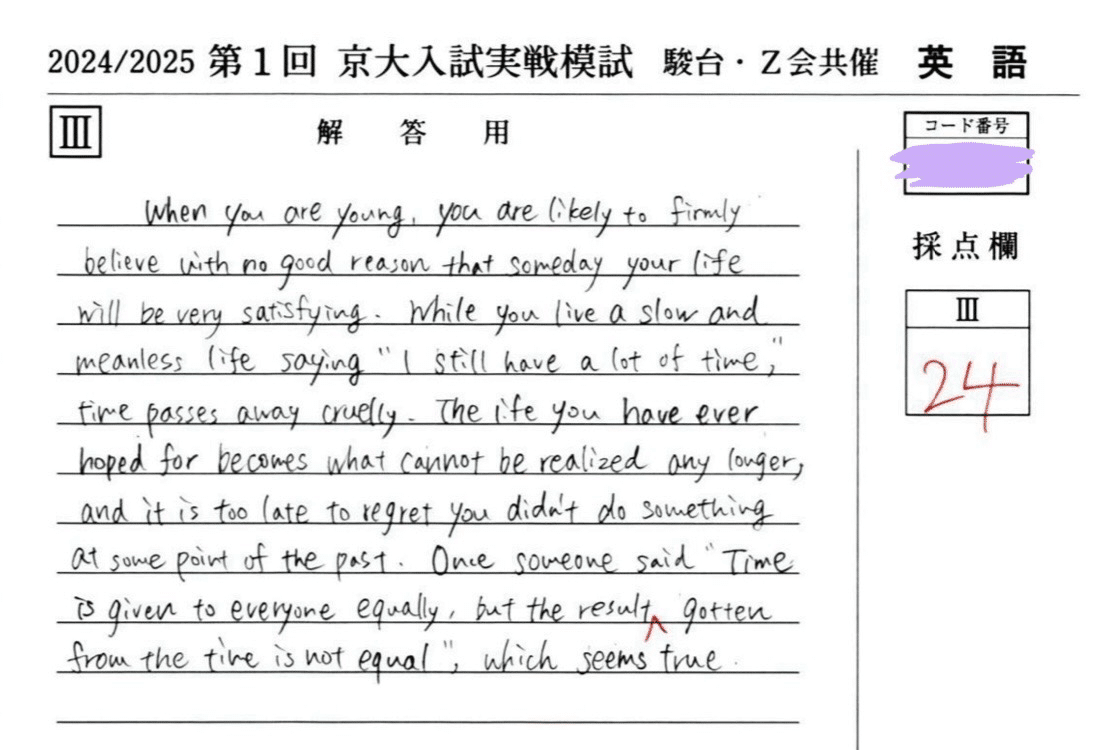 2024/2025 第1回 京大入試実戦模試 駿台・Z会共催 英語
III 解答用
コード番号
When you are young, you are likely to firmly
believe with no good reason that someday your life
will be very satisfying. While you live a slow and
meanless life saying "I still have a lot of time,"
time passes away cruelly. The life you have ever
hoped for becomes what cannot be realized any longer,
and it is too late to regret you didn't do something
at some point of the past. Once someone said "Time
is given to everyone equally, but the result gotten
from the time is not equal", which seems true.
採点欄
III
24